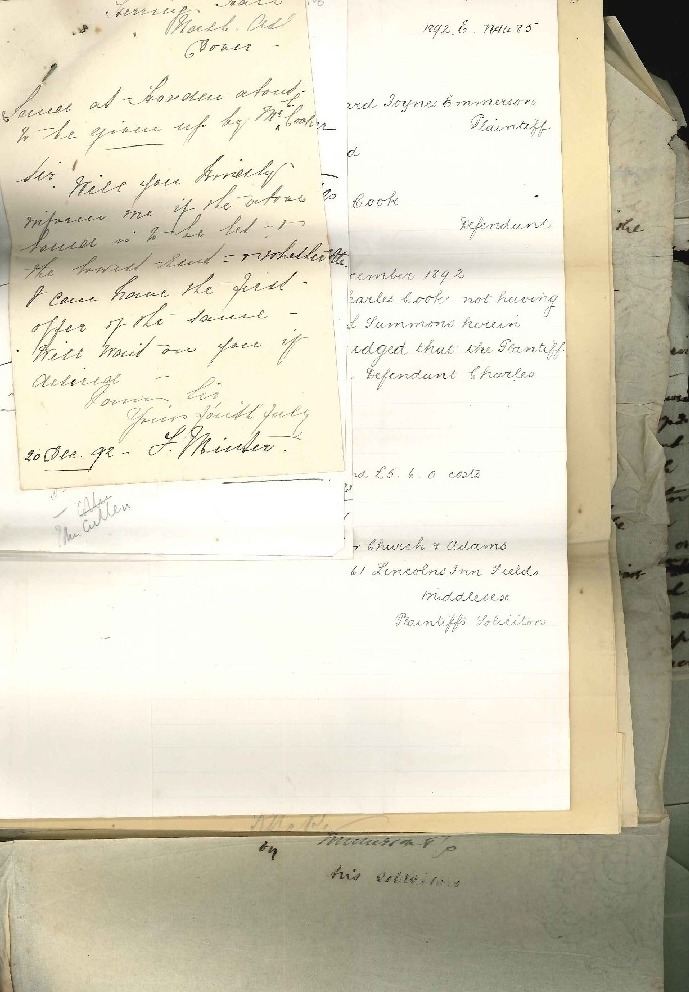 Marsh Ash
Dover
House at Horden about
to be given up by Mr Cooper
Sir
Will you kindly
inform me if the above
house is to be let - &
the lowest rent = & whether the
I can have the first -
offer of the same -
Will wait on you if
desired -
Sir
Yours faithfully
20 Dec. 92 - F. Minter.
McCullen
1892. E. No
ard Joyne Emmerson
Plaintiff
d
Cook
Defendant
cember 1892
harles Cook not having
Summons herein
udged that the Plaintiff
Defendant Charles
nd £5. 6. 0 costs
r Church & Adams
61 Lincolns Inn Fields
Middlesex
Plaintiffs Solicitors
the
by
his solicitors